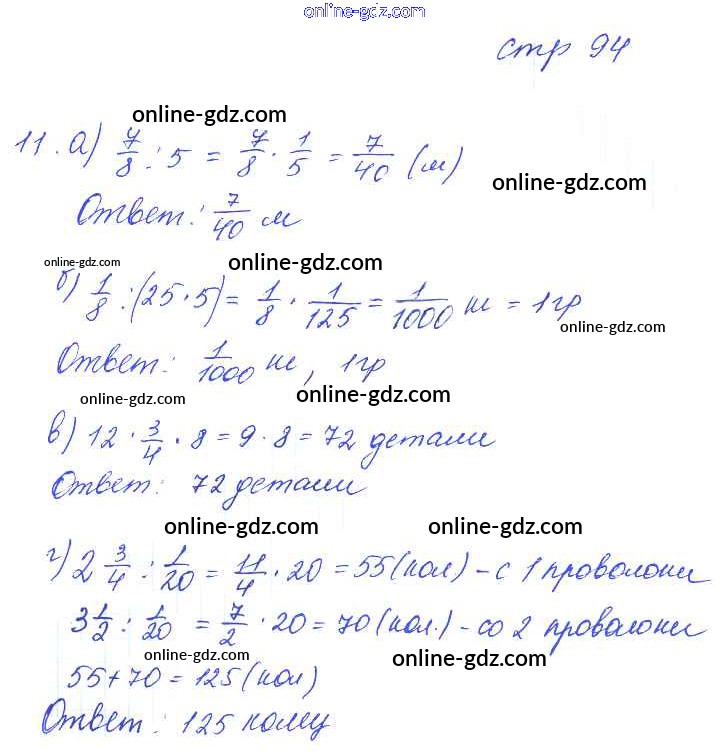 online-gdz.com
стр 94
online-gdz.com
11. а) 7/8 : 5 = 7/8 · 1/5 = 7/40 (м)
online-gdz.com
Ответ: 7/40 м
online-gdz.com online-gdz.com
б) 1/8 : (25 · 5) = 1/8 · 1/125 = 1/1000 кг = 1 гр
online-gdz.com
Ответ: 1/1000 кг, 1 гр
online-gdz.com online-gdz.com
в) 12 · 3/4 · 8 = 9 · 8 = 72 детали
Ответ: 72 детали
online-gdz.com online-gdz.com
г) 2 3/4 : 1/20 = 11/4 · 20 = 55 (кол) - с 1 проволоки
3 1/2 : 1/20 = 7/2 · 20 = 70 (кол.) - со 2 проволоки
online-gdz.com online-gdz.com
55 + 70 = 125 (кол)
Ответ: 125 колец